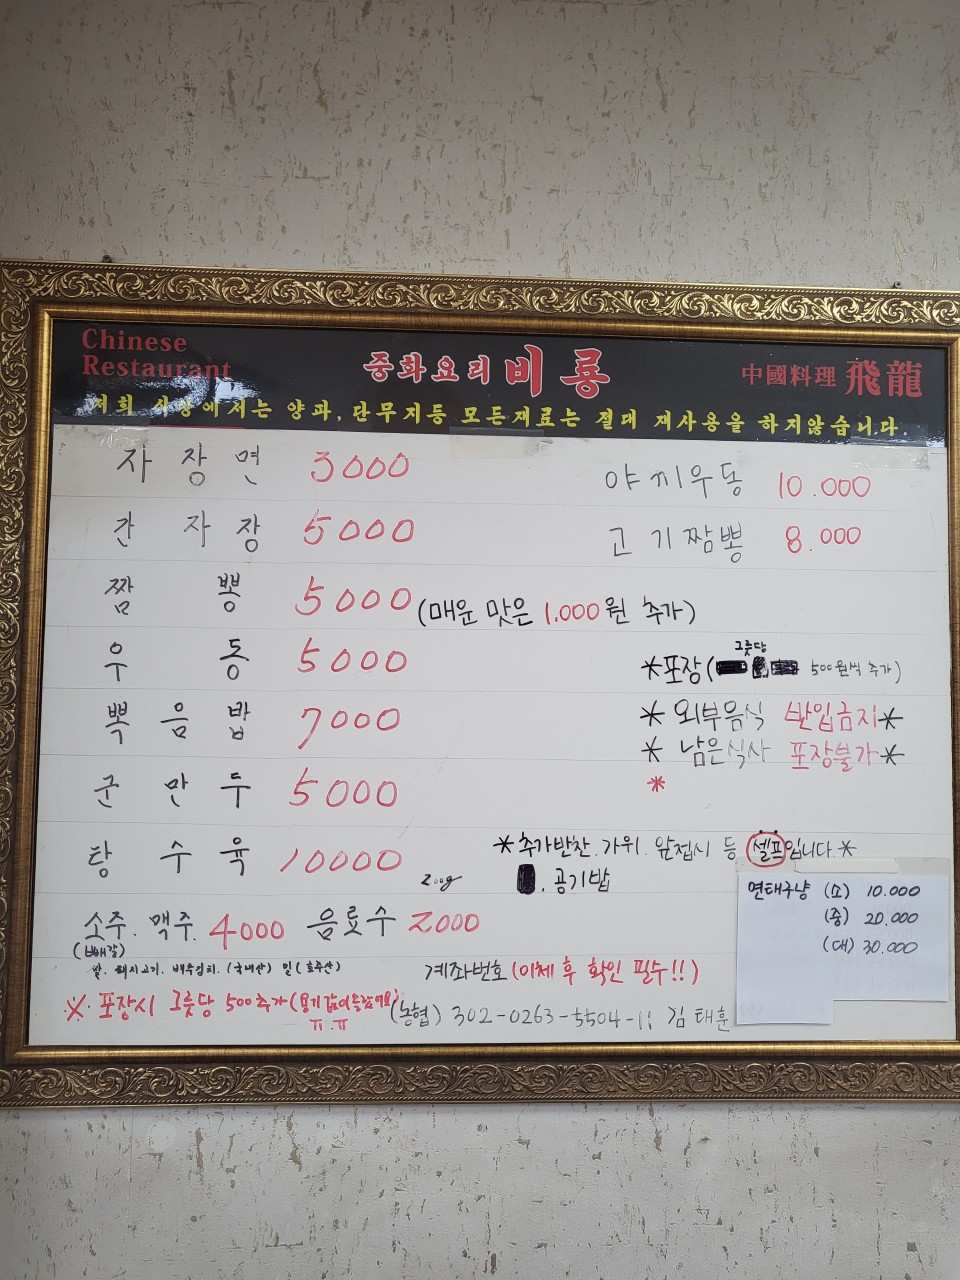 Chinese
Restaurant
중화요리 비룡
中國料理 飛龍
저희 식당에서는 양파, 단무지등 모든재료는 절대 재사용을 하지않습니다.
자장면 3000
간자장 5000
짬뽕 5000 (매운 맛은 1.000원 추가)
우동 5000
뽁음밥 7000
군만두 5000
탕수육 10000 200g
소주. 맥주. 4000 음료수 2000
(빼갈)
쌀. 돼지고기. 배추김치. (국내산) 밀(호주산)
※ 포장시 그릇당 500추가(용기값이올랐어요)
ㅠ.ㅠ
야끼우동 10.000
고기짬뽕 8.000
그릇당
*포장( 500원씩 추가)
* 외부음식 반입금지*
* 남은식사 포장불가*
*
*추가반찬.가위.앞접시 등 셀프입니다.*
. 공기밥
면태구냥 (소) 10.000
(중) 20.000
(대) 30.000
계좌번호(이체 후 확인 필수!!)
(농협) 302-0263-5504-11 김태훈